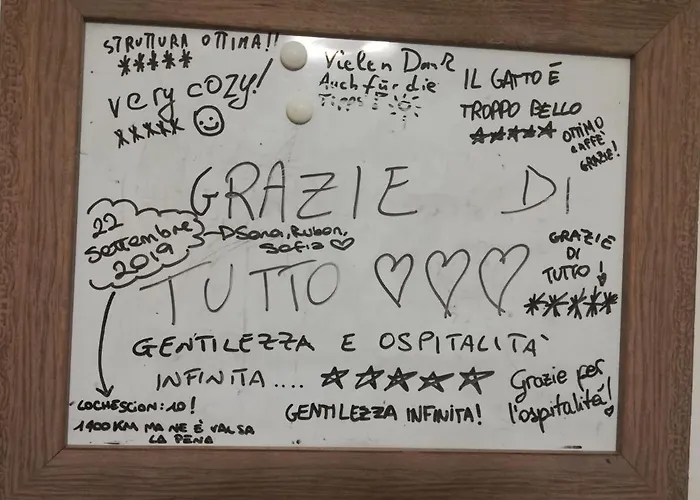 STRUTTURA OTTIMA!!
*****
very cozy!
*****
Vielen Dank
Auch für die
Tipps!
IL GATTO È
TROPPO BELLO
★★★★★
OTTIMO
CAFFÈ
GRAZIE!
GRAZIE DI
TUTTO ♡♡♡
22
Settembre
2019
Sara, Ruben,
Sofia ♡
GRAZIE
DI
TUTTO!
*****
GENTILEZZA E OSPITALITÀ
INFINITA.... ☆☆☆☆☆
GENTILEZZA INFINITA!
Grazie per
l'ospitalità!
LOCHESCION: 10!
1400 KM MA NE È VALSA
LA PENA